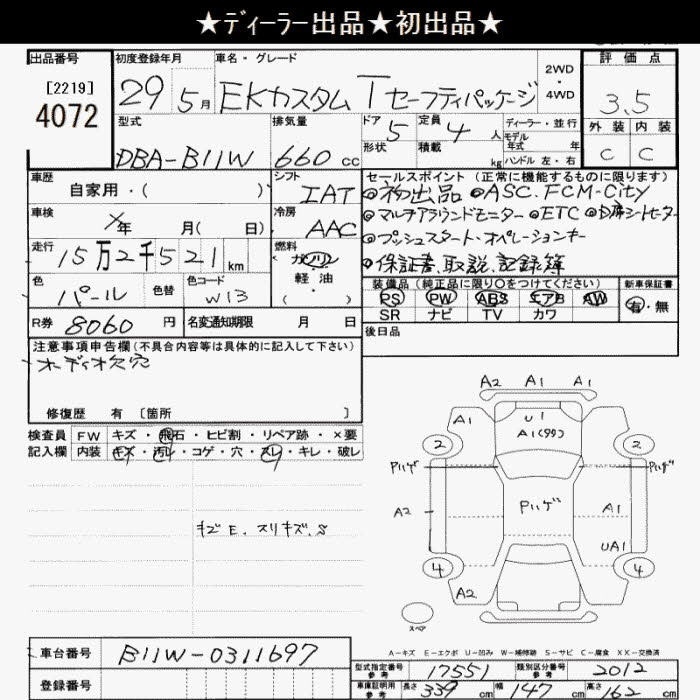 ★ディーラー出品★初出品★
出品番号
[2219]
4072
初度登録年月
29 5月
車名・グレード
EKカスタム T セーフティパッケージ
2WD
・
4WD
評価点
3.5
外装 内装
C C
型式
DBA-B11W
排気量
660 cc
ドア 5
形状
定員 4 人
積載 kg
ディーラー・並行
モデル
年式 年
ハンドル 左・右
車歴
自家用・( )
シフト
IAT
車検
×年 月( 日)
冷房
AAC
走行
15万2千521 km
燃料
ガソリン
軽油
( ・ )
色
パール
色替
色コード
W13
R券 8060 円
名変通知期限 月 日
セールスポイント (正常に機能するものに限ります)
◎初出品 ◎ASC.FCM-City
◎マルチアラウンドモニター ◎ETC
◎プッシュスタート・オペレーションキー
◎保証書、取説、記録簿
装備品 (純正品に限り○をつけてください)
PS PW ABS エアB AW
SR ナビ TV カワ
新車保証書
有・無
後日品
注意事項申告欄 (不具合内容等は具体的に記入して下さい)
オーディオ欠穴
修復歴 有 [箇所 ]
検査員
記入欄
FW キズ・飛石・ヒビ割・リペア跡・×要
内装 キズ・汚レ・コゲ・穴・スレ・キレ・破レ
キズE、スリキズ、S
A2 A1 A1
A1 U1
A1(99)
2 2
Pハゲ Pハゲ
A2 Pハゲ A1
UA1
4 4
A2
スペア
A-キズ E-エクボ U-凹み W-補修跡 S-サビ C-腐食 XX-交換済
車台番号 B11W-0311697
登録番号
型式指定番号
参考
17551
類別区分番号
参考
2012
車庫証明用
参考
長さ 339 cm 幅 147 cm 高さ 162 cm